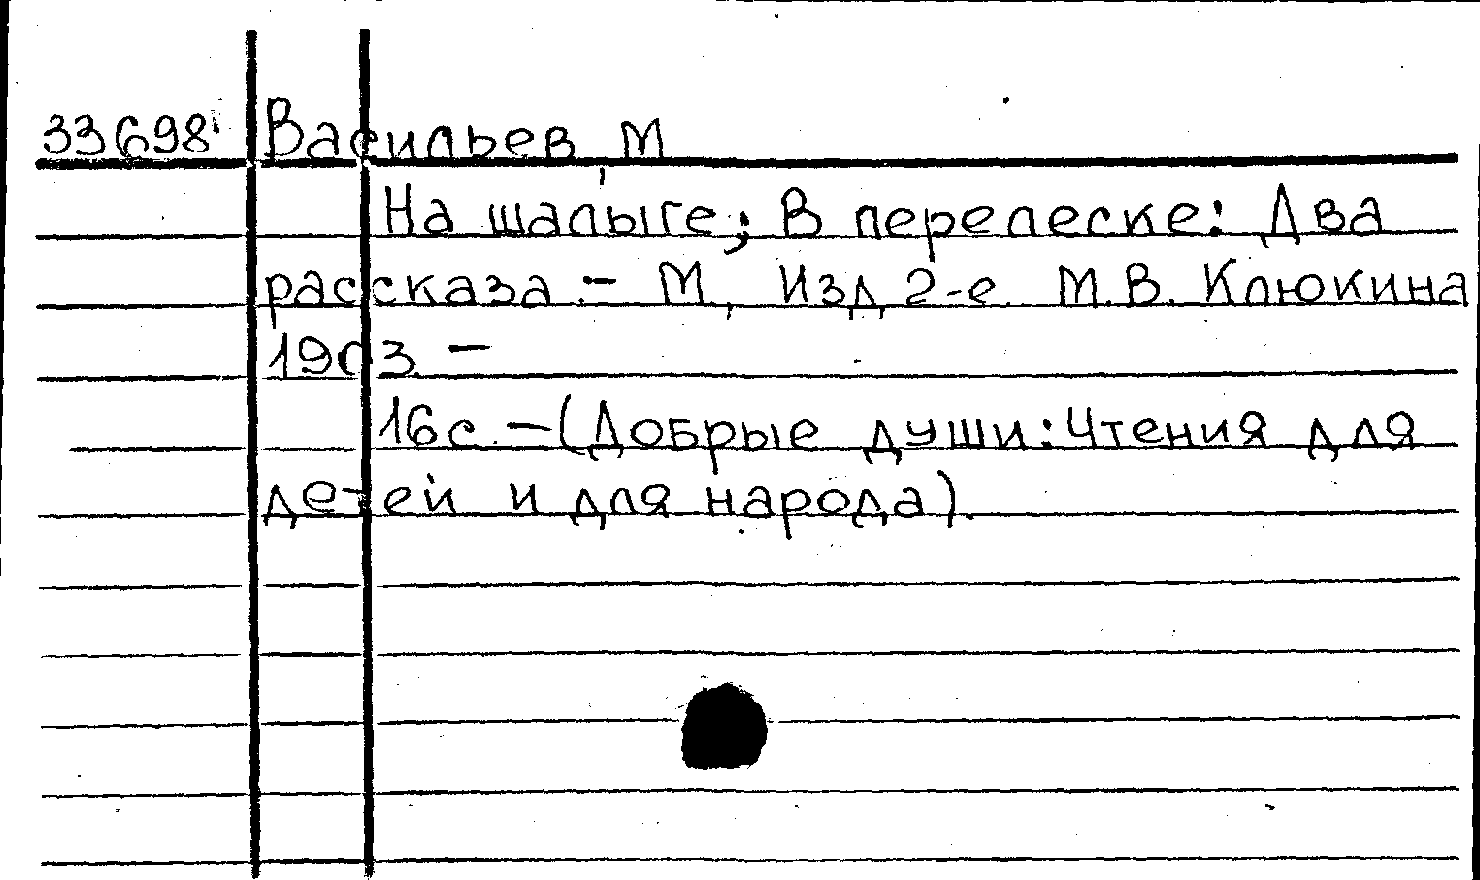 33698 Васильев, М
На шалыге; В перелеске: Два
рассказа.- М, Изд. 2-е. М.В. Клюкина
1903. -
16с. -(Добрые души: Чтения для
детей и для народа).